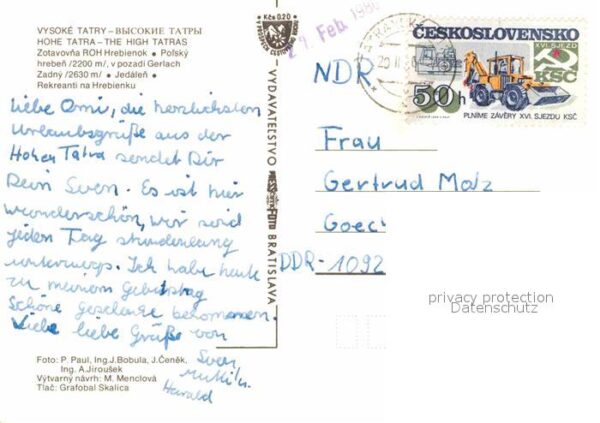 VYSOKÉ TATRY – ВЫСОКИЕ ТАТРЫ
HOHE TATRA – THE HIGH TATRAS
Zotavovňa ROH Hrebienok • Poľský
hrebeň /2200 m/, v pozadí Gerlach
Zadný /2630 m/ • Jedáleň •
Rekreanti na Hrebienku
Liebe Omi, die herzlichsten
Urlaubsgrüße aus der
Hohen Tatra sendet Dir
Dein Sven. Es ist hier
wunderschön, wir sind
jeden Tag stundenlang
unterwegs. Ich habe heute
zu meinem Geburtstag
schöne geschenke bekommen.
Viele liebe Grüße von
Sven
Mutti u.
Harald
Foto: P. Paul, Ing.J.Bobula, J.Čeněk,
Ing. A.Jiroušek
Výtvarný návrh: M. Menclová
Tlač: Grafobal Skalica
Kčs 0,20
VYDAVATEĽSTVO
BRATISLAVA
Feb. 1986
ČESKOSLOVENSKO
XVI.SJEZD
KSČ
50 h
PLNÍME ZÁVĚRY XVI. SJEZDU KSČ
NDR
Frau
Gertrud Motz
DDR-1092
privacy protection
Datenschutz